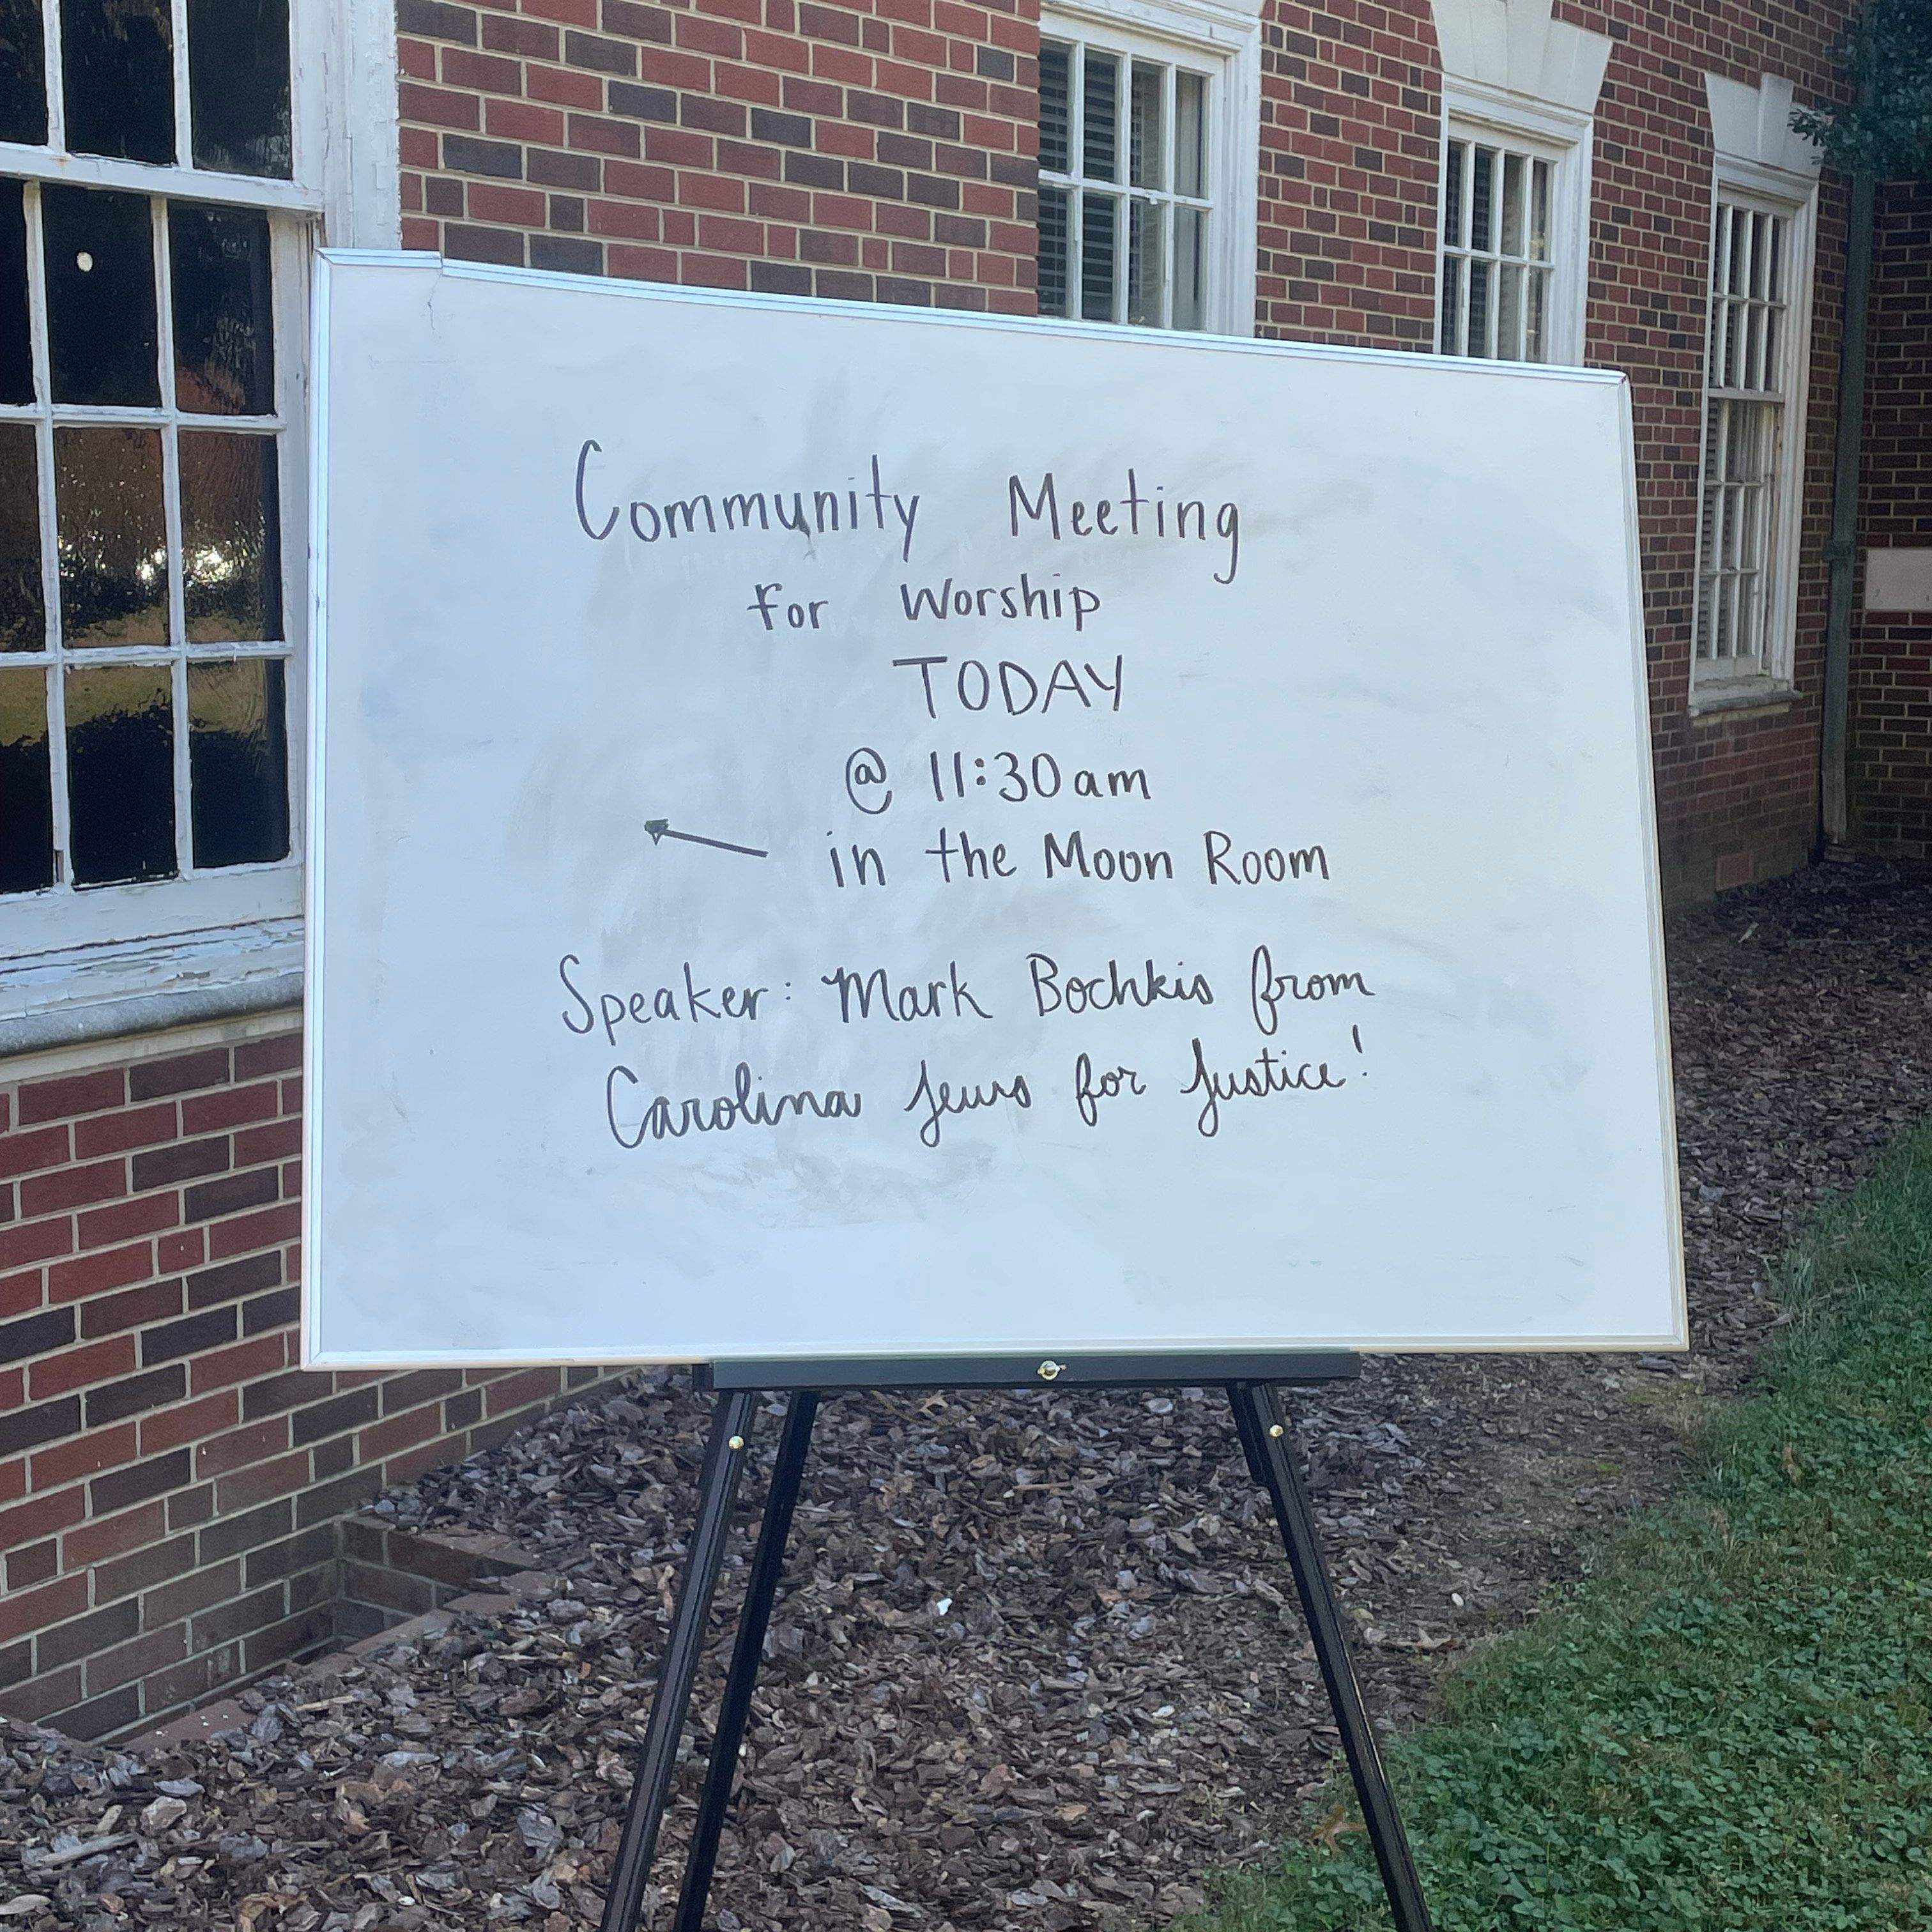 Community Meeting
for Worship
TODAY
@ 11:30am
in the Moon Room
Speaker: Mark Bochkis from
Carolina Jews for Justice!